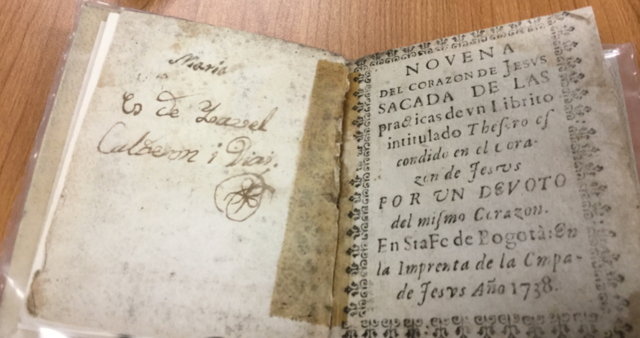 Maria
Es de Ysavel
Calderon i Diaz.
NOVENA
DEL CORAZON DE JESVS
SACADA DE LAS
practicas de vn Librito
intitulado Thesero es
condido en el Cora-
zon de Jesvs
POR UN DEVOTO
del mismo Corazon.
En StaFe de Bogotà: En
la Imprenta de la Cmpa-
de Jesvs Año 1738.